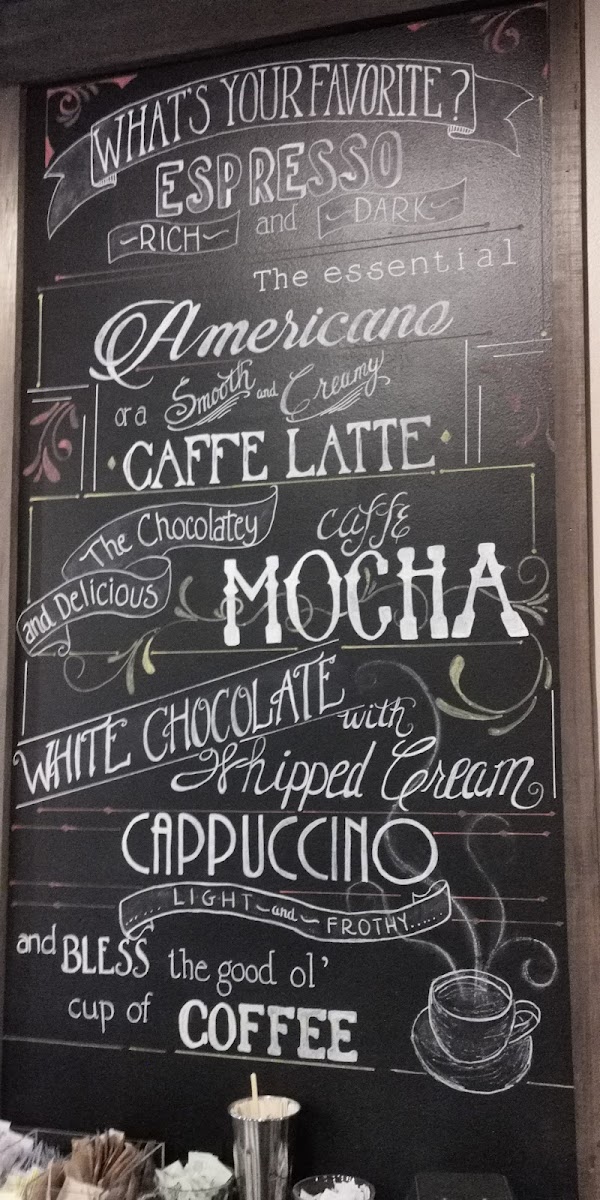 WHAT'S YOUR FAVORITE?
ESPRESSO
~RICH~ and ~DARK~
The essential
Americano
or a Smooth and Creamy
CAFFE LATTE
The Chocolatey
and Delicious
caffe
MOCHA
WHITE CHOCOLATE
with
Whipped Cream
CAPPUCCINO
......LIGHT~and~FROTHY......
and BLESS the good ol'
cup of COFFEE